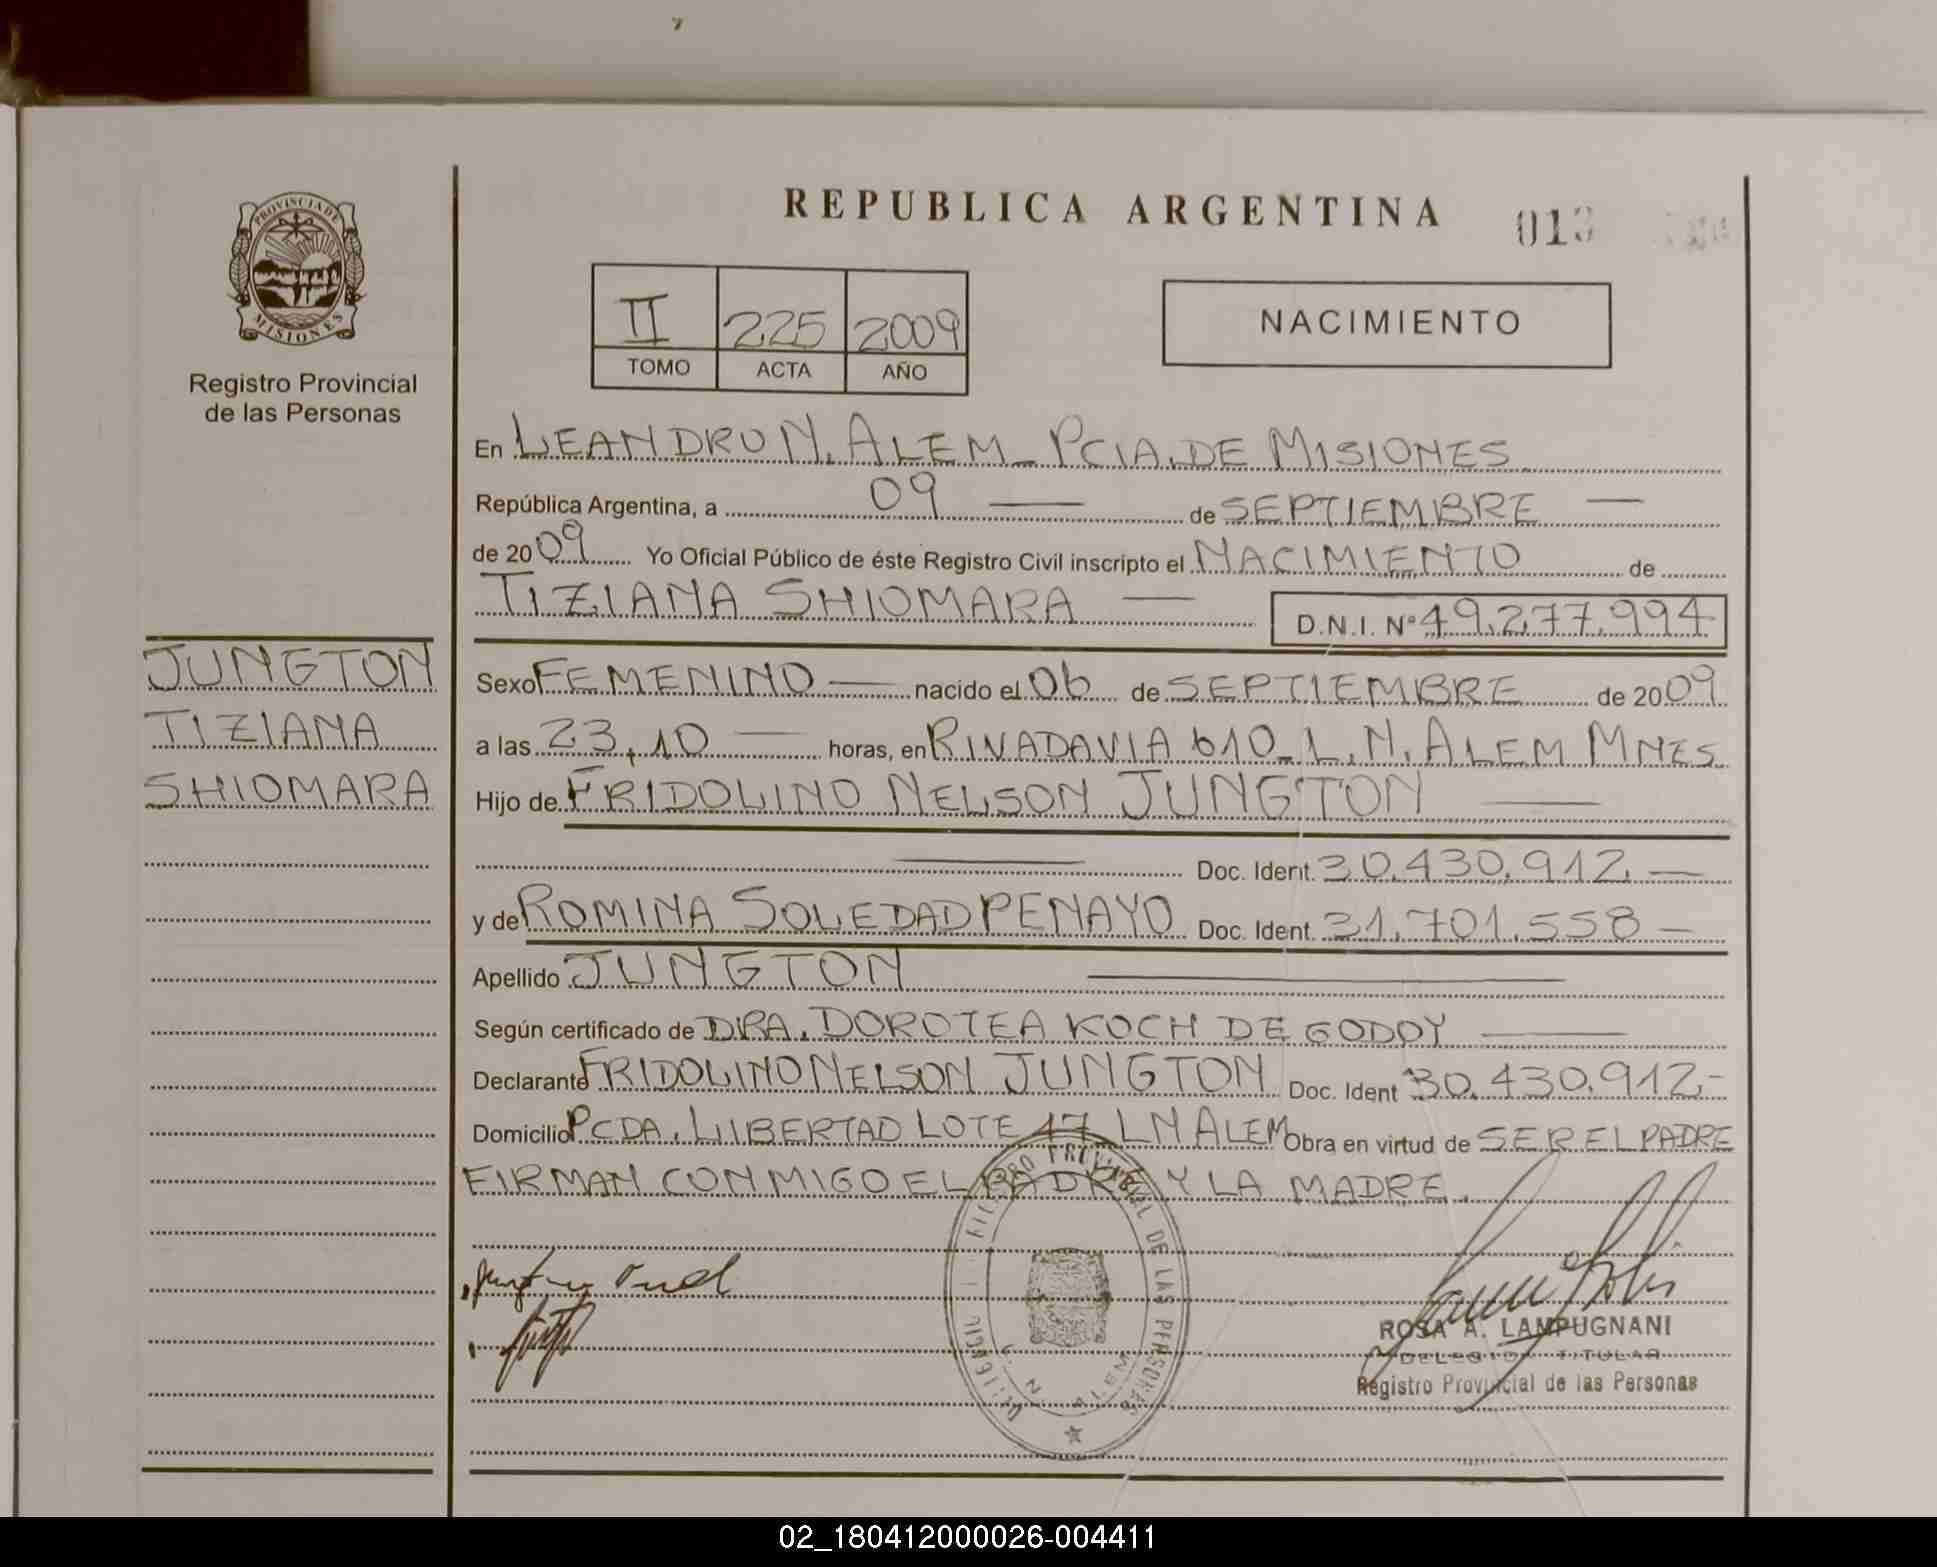 REPUBLICA ARGENTINA
013
PROVINCIA DE
MISIONES
Registro Provincial
de las Personas
II 225 2009
TOMO ACTA AÑO
NACIMIENTO
En LEANDRO N. ALEM - PCIA. DE MISIONES
República Argentina, a 09 — de SEPTIEMBRE —
de 2009 Yo Oficial Público de éste Registro Civil inscripto el NACIMIENTO de
TIZIANA SHIOMARA — D.N.I. Nº 49.277.994
JUNGTON
TIZIANA
SHIOMARA
Sexo FEMENINO — nacido el 06 de SEPTIEMBRE de 2009
a las 23,10 — horas, en RIVADAVIA 610 - L.N. ALEM MNES
Hijo de FRIDOLINO NELSON JUNGTON —
— Doc. Ident. 30.430.912. —
y de ROMINA SOLEDAD PENAYO Doc. Ident. 31.701.558 —
Apellido JUNGTON —
Según certificado de DRA. DOROTEA KOCH DE GODOY —
Declarante FRIDOLINO NELSON JUNGTON Doc. Ident 30.430.912.-
Domicilio PCDA. LIBERTAD LOTE 17 LN ALEM Obra en virtud de SER EL PADRE
FIRMAN CONMIGO EL PADRE Y LA MADRE.
REGISTRO PROVINCIAL DE LAS PERSONAS
L. N. ALEM
ROSA A. LAMPUGNANI
DELEGADA TITULAR
Registro Provincial de las Personas
02_180412000026-004411